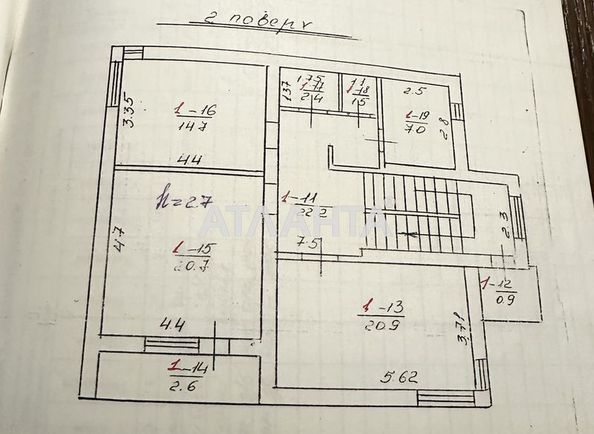 2 поверх
1.75
1-17
2.4
1.37
1.1
1-18
1.5
2.5
1-19
7.0
2.8
3.35
1-16
14.7
4.4
h=2.7
1-11
22.2
7.5
4.7
1-15
20.7
4.4
2.3
1-12
0.9
1-13
20.9
3.71
5.62
1-14
2.6
АТЛАНТА